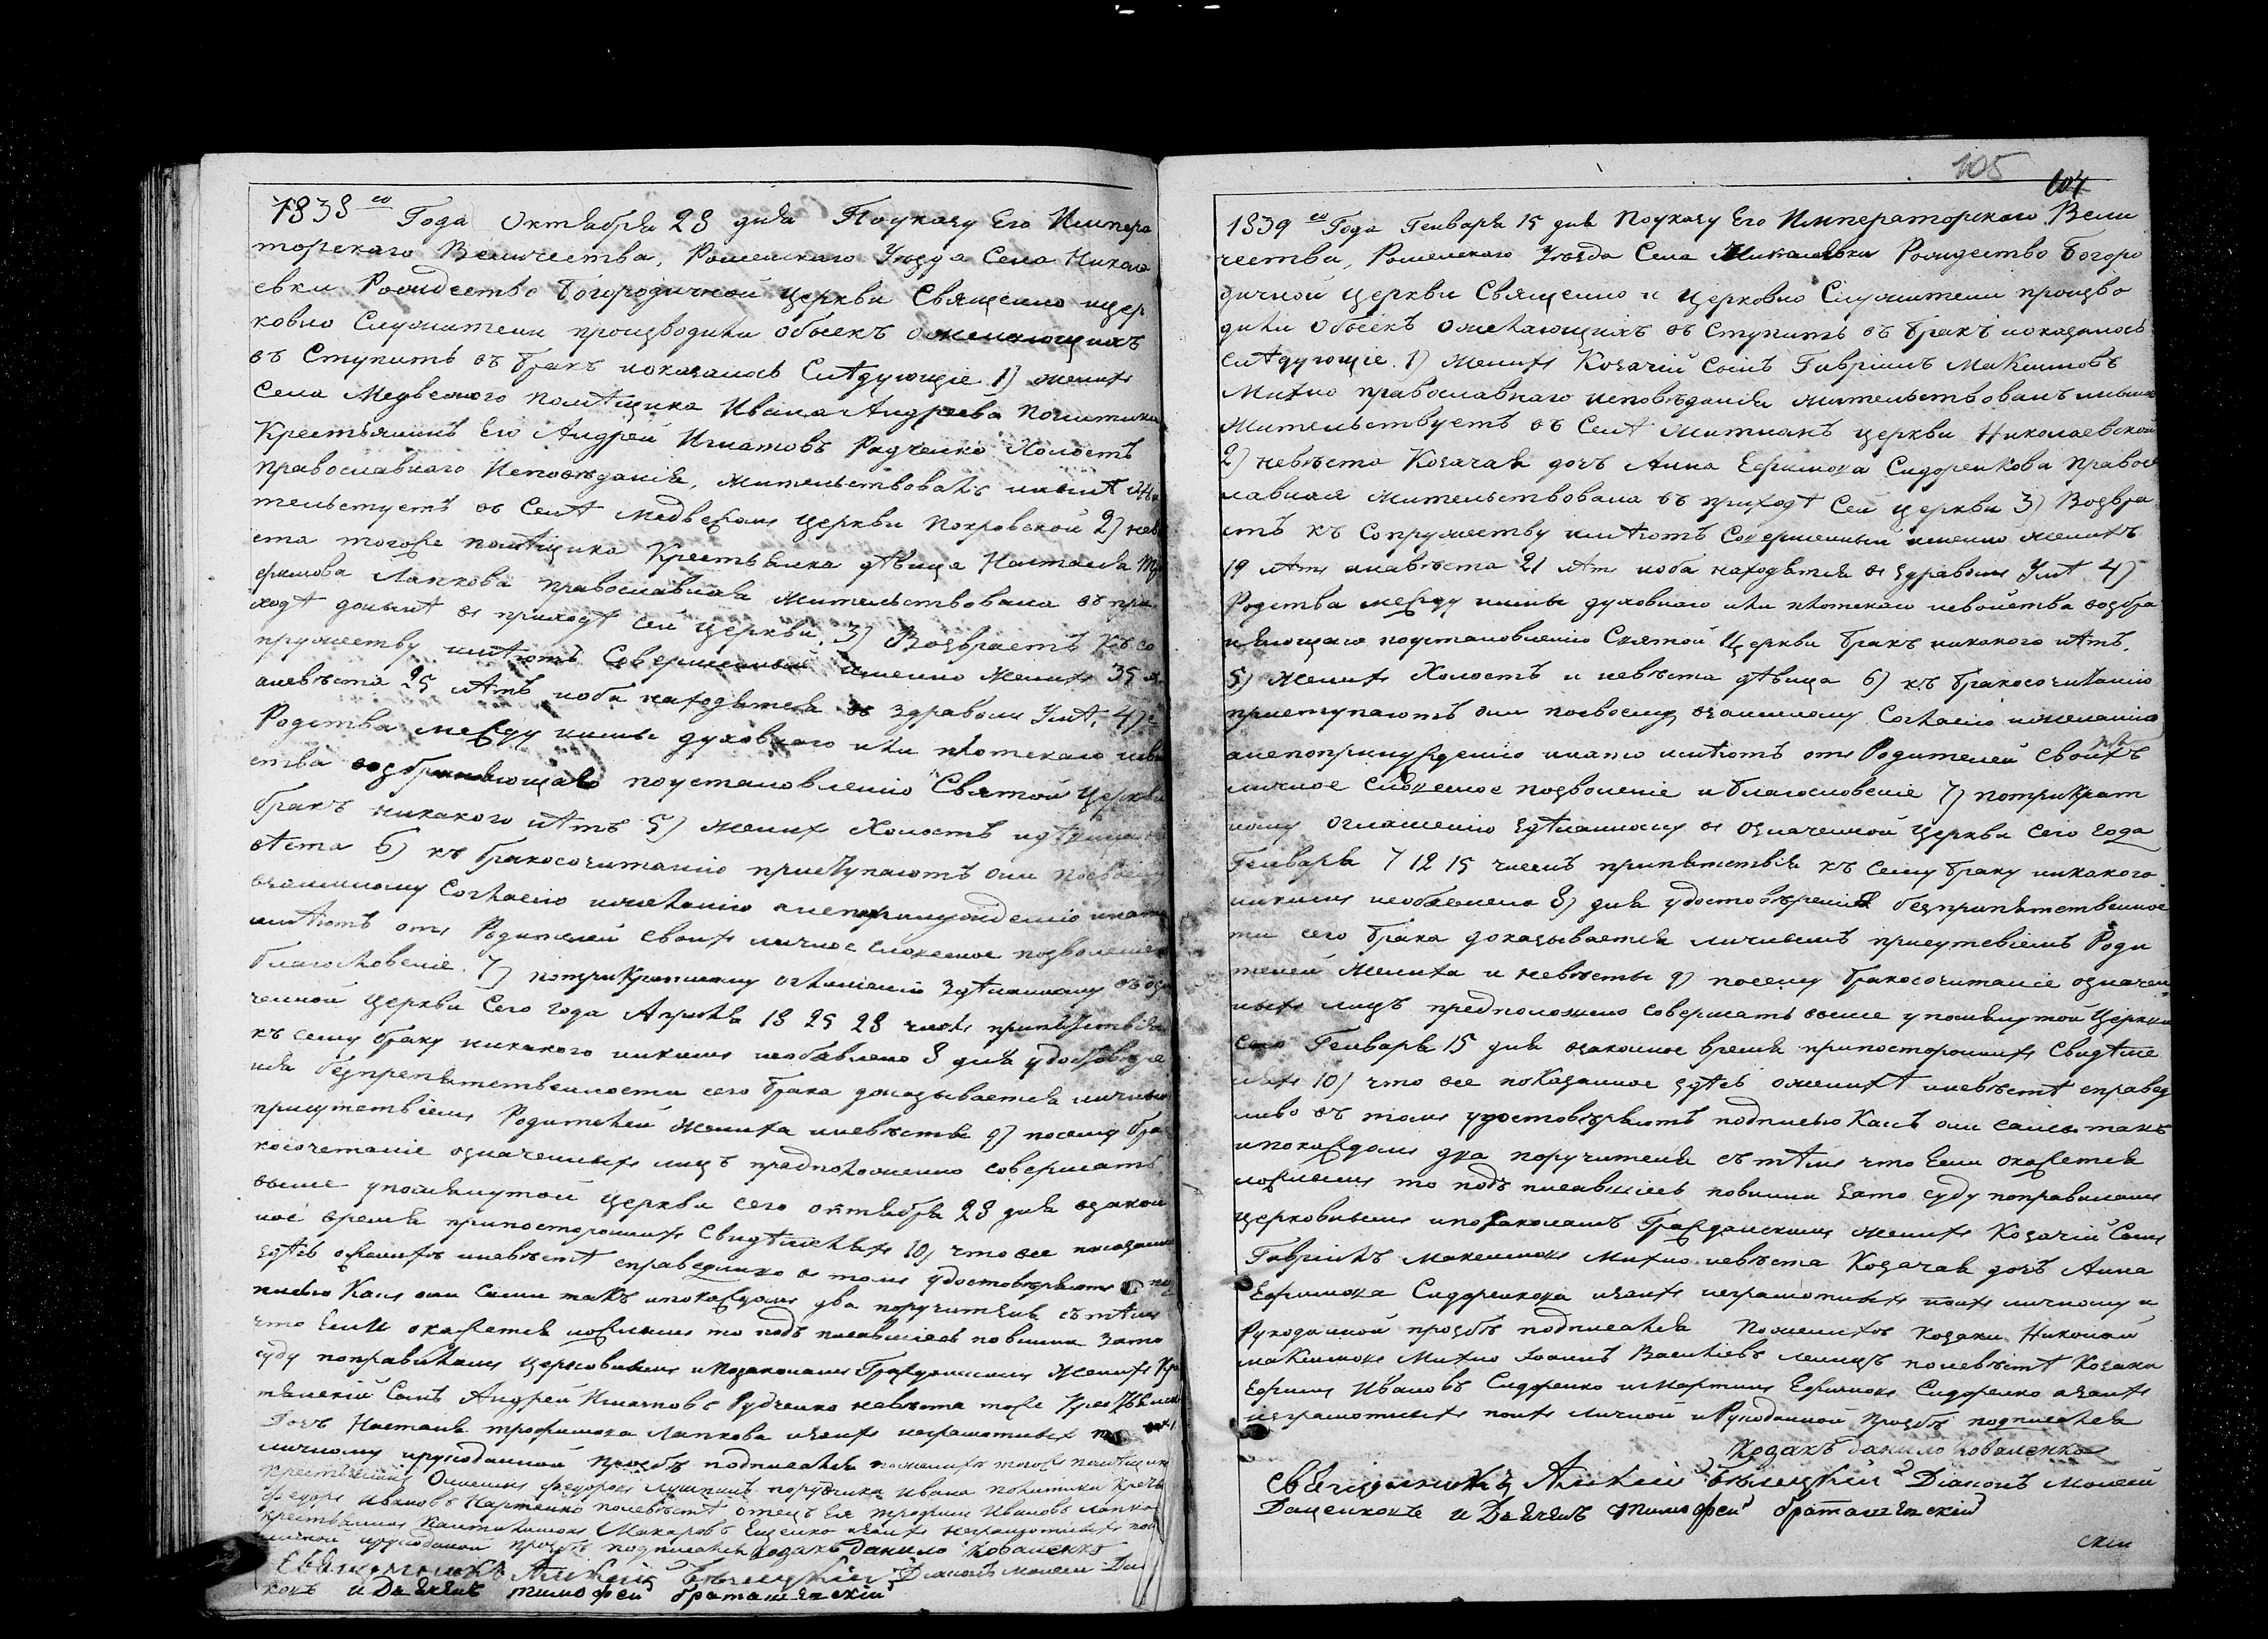 1838го Года Октября 28 дня По указу Его Импера
торскаго Величества, Роменскаго Уезда Села Никола
евки Рождество Богородичной церкви Священно ицер
ковно Служители производили обыскъ ожелающихъ
въ Ступить въ бракъ иоказалось Слѣдующіе 1) женихъ
Села Медвежого помѣщика Ивана Андреева
Крестьянинъ Его Андрей Игнатовъ Радченко Холостъ
православнаго Исповѣданія, жительствовалъ инынѣ жи
тельстуетъ въ Селѣ Медвежомъ церкви Покровской 2) нев
ста тогоже помѣщика Крестьянка дѣвица Настасья Тр
фимова Лапкова православная жительствовала въ при
ходѣ донынѣ въ приходѣ сей церкви. 3) Возврастъ Къ со
пружеству имѣютъ Совершенный именно Женихъ 35 л
аневѣста 25 лѣтъ иоба находятся въ здравомъ Умѣ, 4)
Родства между ними духовнаго или плотскаго
ства возбраняющаго поустановленію Святой Церкви
бракъ никакого нѣтъ 5) женихъ Холостъ идѣвица
вѣста 6) къ бракосочитанію приступаютъ они посвоему
взаимному Согласію ижеланію анепопринуждению инато
имѣютъ отъ Родителей своихъ личное словесное позволеніе
благословеніе. 7) потрикратному оглашенію Здѣланному въ оз
ченной церкви Сего года Апрѣля 18 25 28 числъ припятствія
къ сему браку никакого никимъ необявлено 8 для удостовѣре
нія безпрепятственности сего брака доказывается личнымъ
присутствіемъ Родителей жениха иневѣсты 9) посему бра
косочетаніе означенныхъ лицъ предположено совершать
выше упомянутой церкви сего октября 28 дня взакон
ное время припостороннихъ Свидѣтеляхъ 10) что все показанное
здѣсь оженихѣ иневѣстѣ справедливо въ томъ удостовѣряютъ под
писью Какъ они Сами такъ ипокаждомъ два поручителя сътѣмъ
что Если окажется ложнымъ то подъ писавшіесь повинни Зато
суду поправиламъ церковнымъ ипозаконамъ Гражданскимъ Женихъ Кре
тьянскій Сынъ Андрей Игнатовъ Рудченко невѣста тоже Крестьянск
Дочь Настасья трофимова Лапкова азаихъ неграмотныхъ
личному ирукоданной прозбѣ подписался поженихѣ тогоже помѣщика
крестьянинъ Федоровъ поручика Ивана крестья
Федоръ Ивановъ поневѣстѣ отецъ Ея трофимъ Ивановъ Лапко
крестьянинъ Макаровъ Ещенко азаихъ неграмотныхъ поих
личной ирукоданой прозбѣ подписался козакъ Данило Коваленко
Священникъ Алексѣй Бѣлецкій Діаконъ Моисей Да
ковъ и Дьячекъ тимофей браташевскій
105
104
1839го Года Генваря 15 дня Поуказу Его Императорскаго Вели
чества, Роменскаго Уѣзда Села Миколаевки Рождество Богоро
дичной церкви Священно и Церковно Служители произво
дили обыскъ ожелающихъ въ Ступить въ бракъ иоказалось
слѣдующіе. 1) женихъ Козачій Сынъ Гаврiилъ Максимовъ
Михно православнаго исповѣданія жительствовалъ инынѣ
жительствуетъ въ Селѣ церкви Николаевской
2) невѣста Козачая дочь Анна Ефимова Сидоренкова Правос
лавная жительствовала въ приходѣ Сей церкви 3) Возвра
стъ къ Сопружеству имѣютъ Совершенный именно женихъ
19 лѣтъ аневѣста 21 лѣт иоба находятся въ здравомъ Умѣ 4)
Родства между ними духовнаго или плотскаго исвойства возбра
няющаго поустановленію Святой Церкви бракъ никакого нѣтъ.
5) женихъ Холостъ и невѣста дѣвица 6) къ бракосочитанію
приступаютъ они посвоему взаимному Согласію ижеланію
анепопринужденію инато имѣютъ отъ Родителей своихъ
личное словесное позволеніе иблагословеніе 7) потрикрат
ному оглашенію здѣланному въ означенной церкви Сего года
Генваря 7 12 15 числъ припятствія къ Сему браку никакого
никимъ необявлено 8) для удостовѣренія безприпятственнос
ти сего брака доказывается личнымъ присутсвіемъ Роди
телей жениха и невѣсты 9) посему бракосочитаніе означен
ныхъ лицъ предположено совершать выше упомянутой Церкви
Сего Генваря 15 дня взаконное время припостороннихъ Свидѣте
ляхъ 10) что все поКазанное здѣсь оженихѣ иневѣстѣ справед
ливо въ томъ удостовѣряютъ подписью Какъ они сами такъ
ипокаждомъ два поручителя сътѣмъ что Если окажется
ложнымъ то подъ писавшіесь повинни зато суду поправиламъ
церковнымъ ипозаконамъ Гражданскимъ женихъ Козачій Сынъ
Гавріилъ Максимовъ Михно невѣста Козачая дочь Анна
Ефимова Сидоренкова азаихъ неграмотныхъ поихъ личному и
Рукоданной прозбѣ подписался Поженихѣ козаки Николай
Максимовъ Михно Іоаннъ Василіевъ поневѣстѣ Козаки
Ефимъ Ивановъ Сидоренко иМартинъ Ефимовъ Сидоренко азаихъ
неграмотныхъ поихъ личной иРукоданной прозбѣ подписался
Козакъ Данило Коваленко
Священникъ Алексій Бѣлецкій Діаконъ Моисей
Даценковъ и Дьячекъ тимофей браташевскій
скій